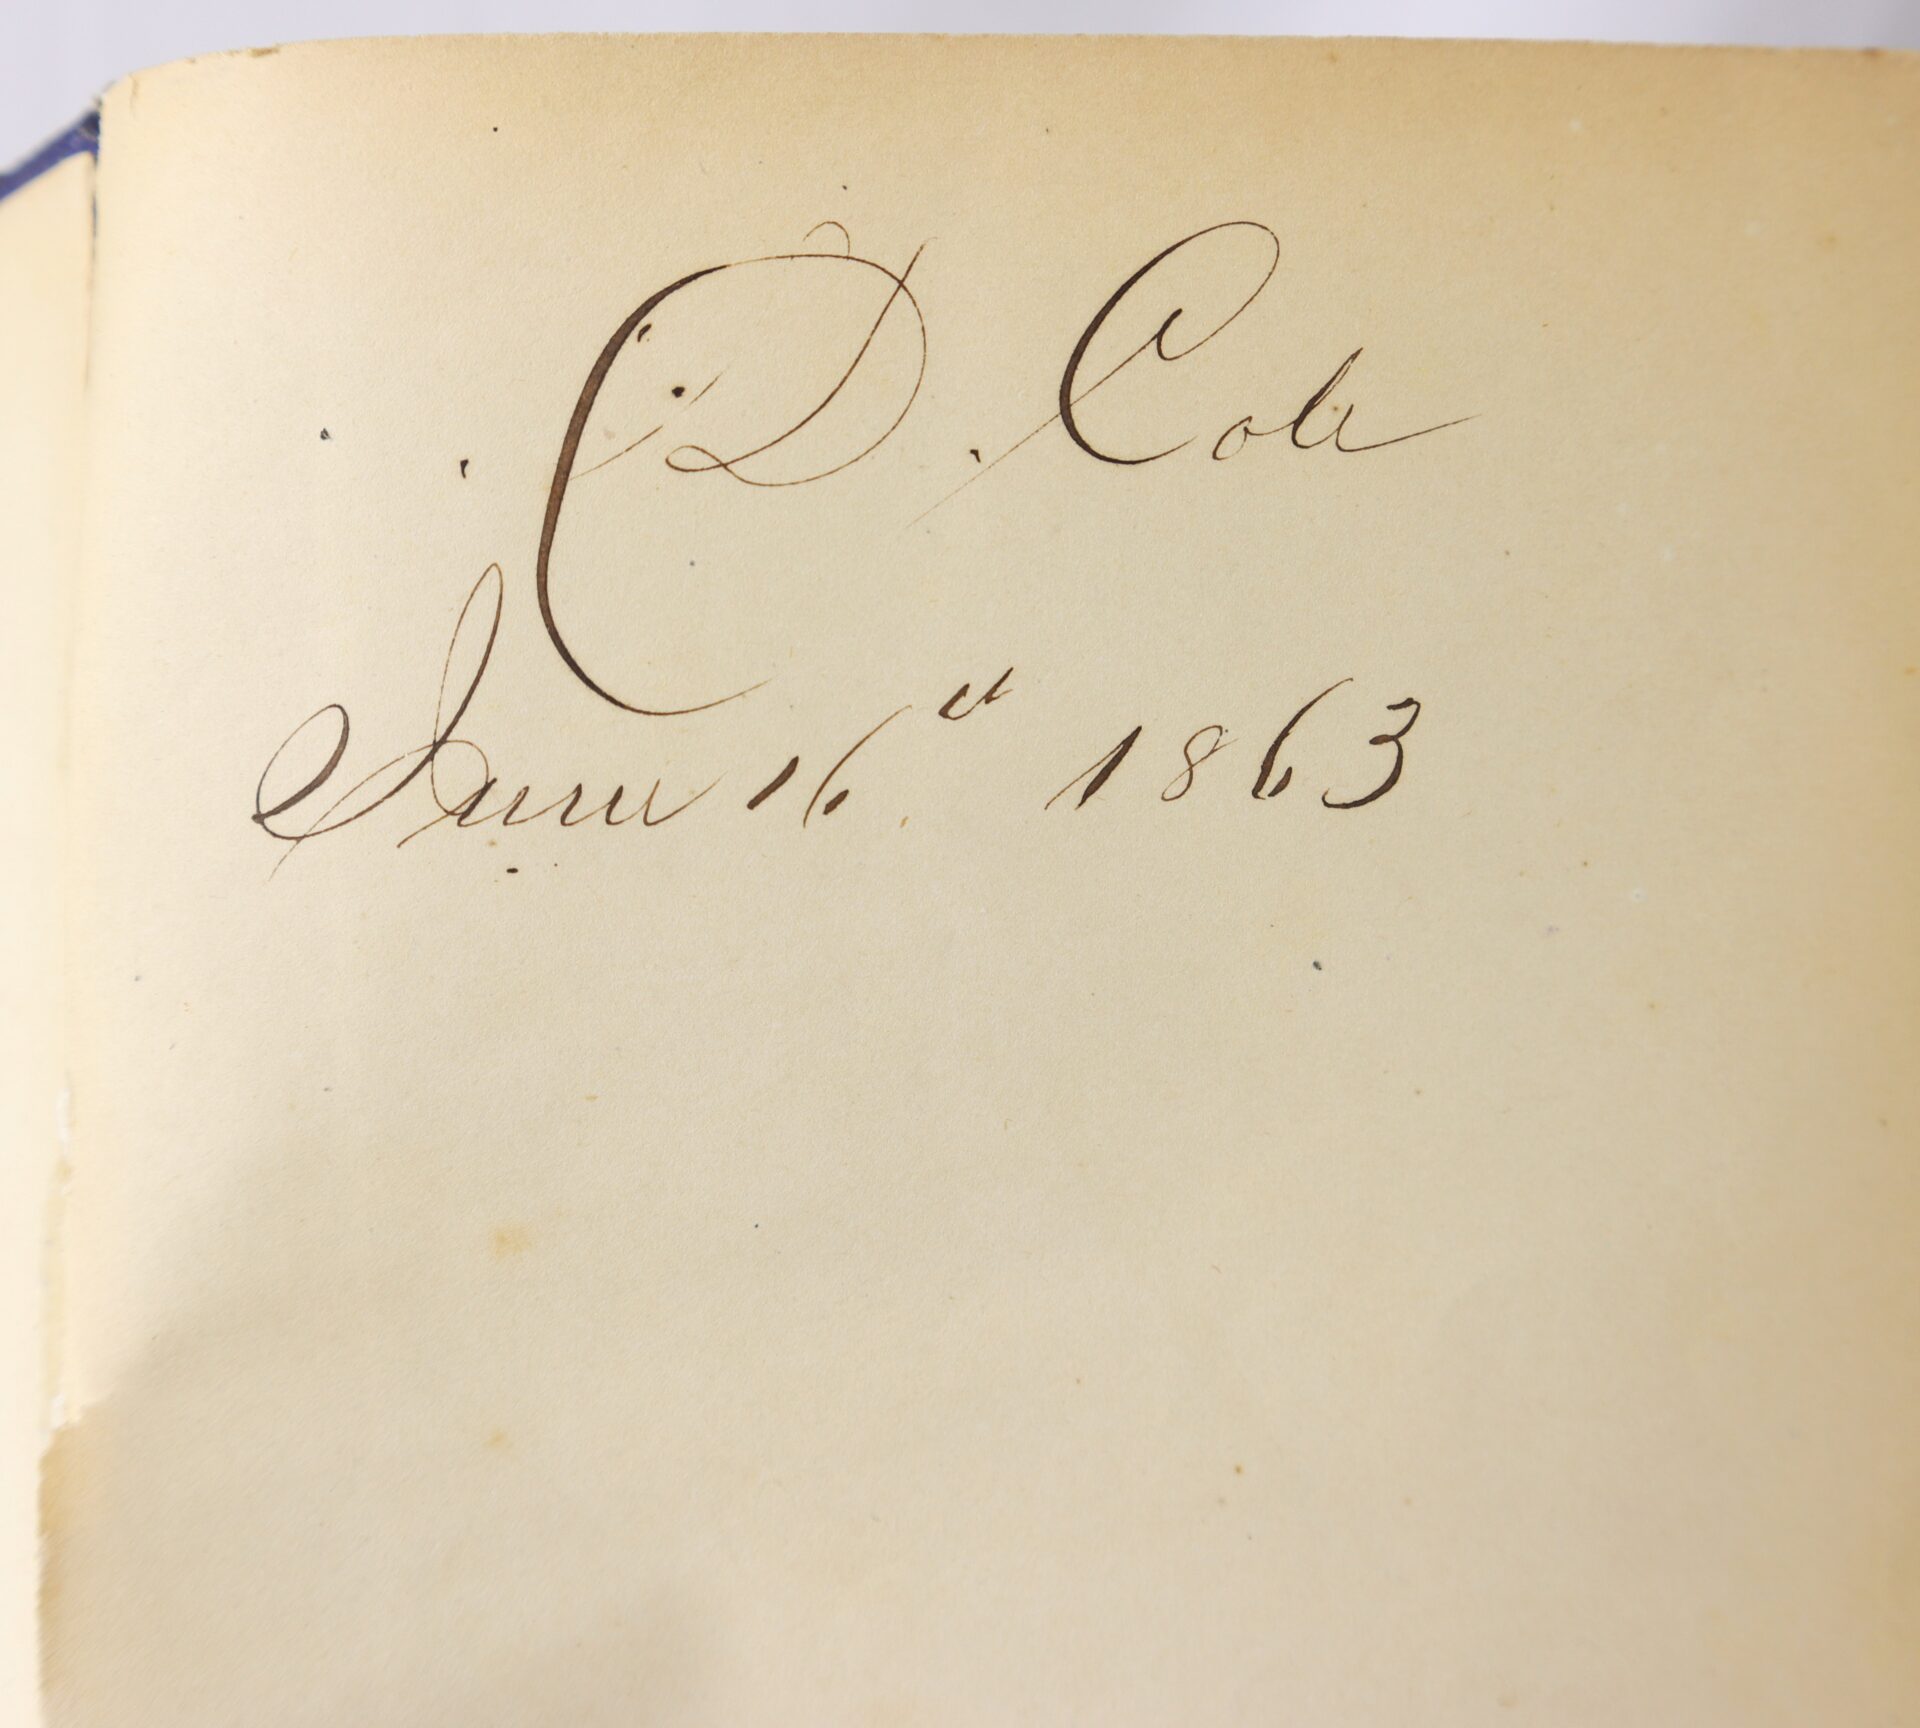 C D. Cole
June 16th 1863